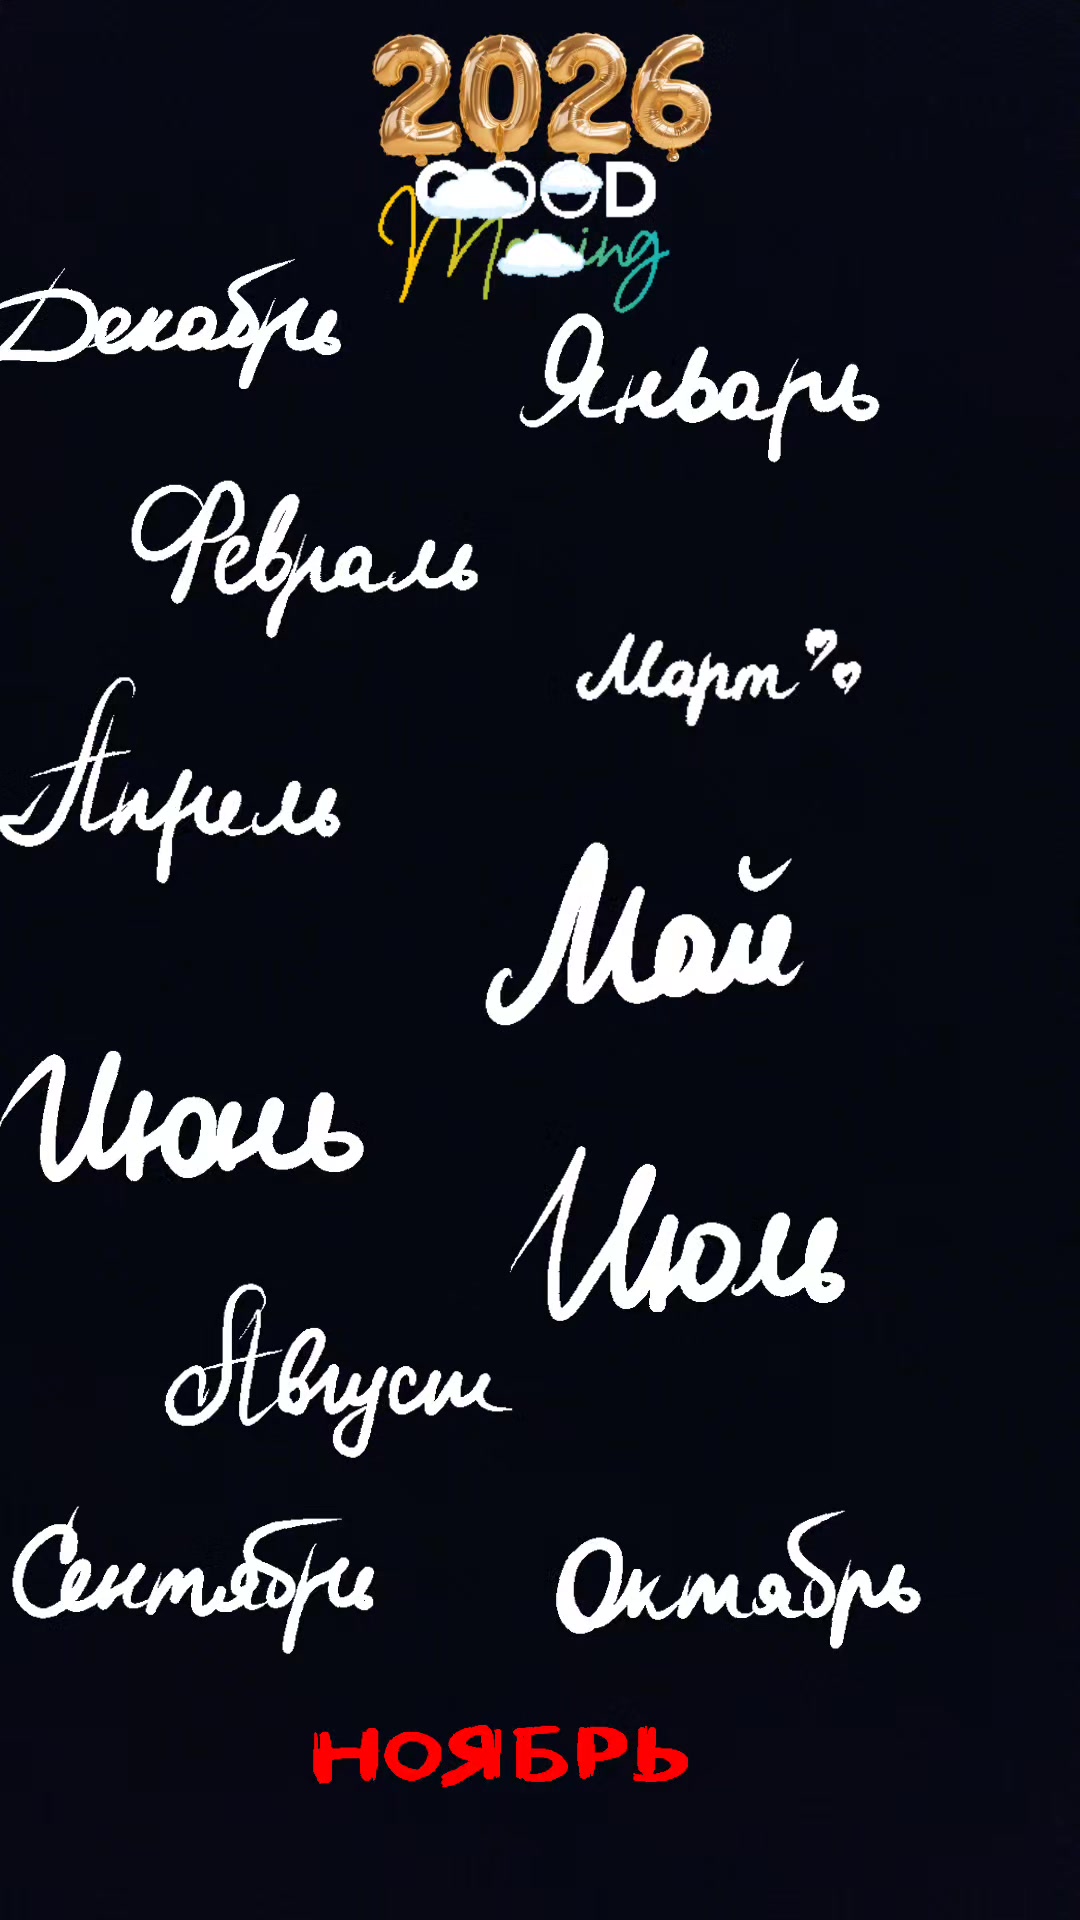 2026
GOOD
Morning
Декабрь
Январь
Февраль
Март
Апрель
Май
Июнь
Июль
Август
Сентябрь
Октябрь
НОЯБРЬ